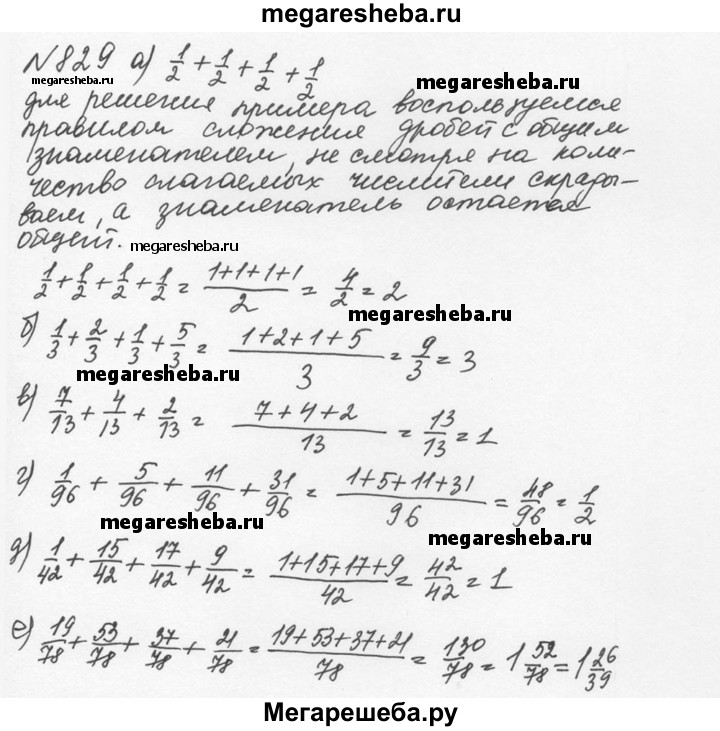 megaresheba.ru
N829 а) 1/2 + 1/2 + 1/2 + 1/2
megaresheba.ru megaresheba.ru
для решения примера воспользуемся
правилом сложения дробей с общим
знаменателем, не смотря на коли-
чество слагаемых числители склады-
ваем, а знаменатель остается
общей. megaresheba.ru
1/2 + 1/2 + 1/2 + 1/2 = (1+1+1+1)/2 = 4/2 = 2
megaresheba.ru
б) 1/3 + 2/3 + 1/3 + 5/3 = (1+2+1+5)/3 = 9/3 = 3
megaresheba.ru
в) 7/13 + 4/13 + 2/13 = (7+4+2)/13 = 13/13 = 1
г) 1/96 + 5/96 + 11/96 + 31/96 = (1+5+11+31)/96 = 48/96 = 1/2
megaresheba.ru megaresheba.ru
д) 1/42 + 15/42 + 17/42 + 9/42 = (1+15+17+9)/42 = 42/42 = 1
е) 19/78 + 53/78 + 37/78 + 21/78 = (19+53+37+21)/78 = 130/78 = 1 52/78 = 1 26/39
Мегарешеба.ру